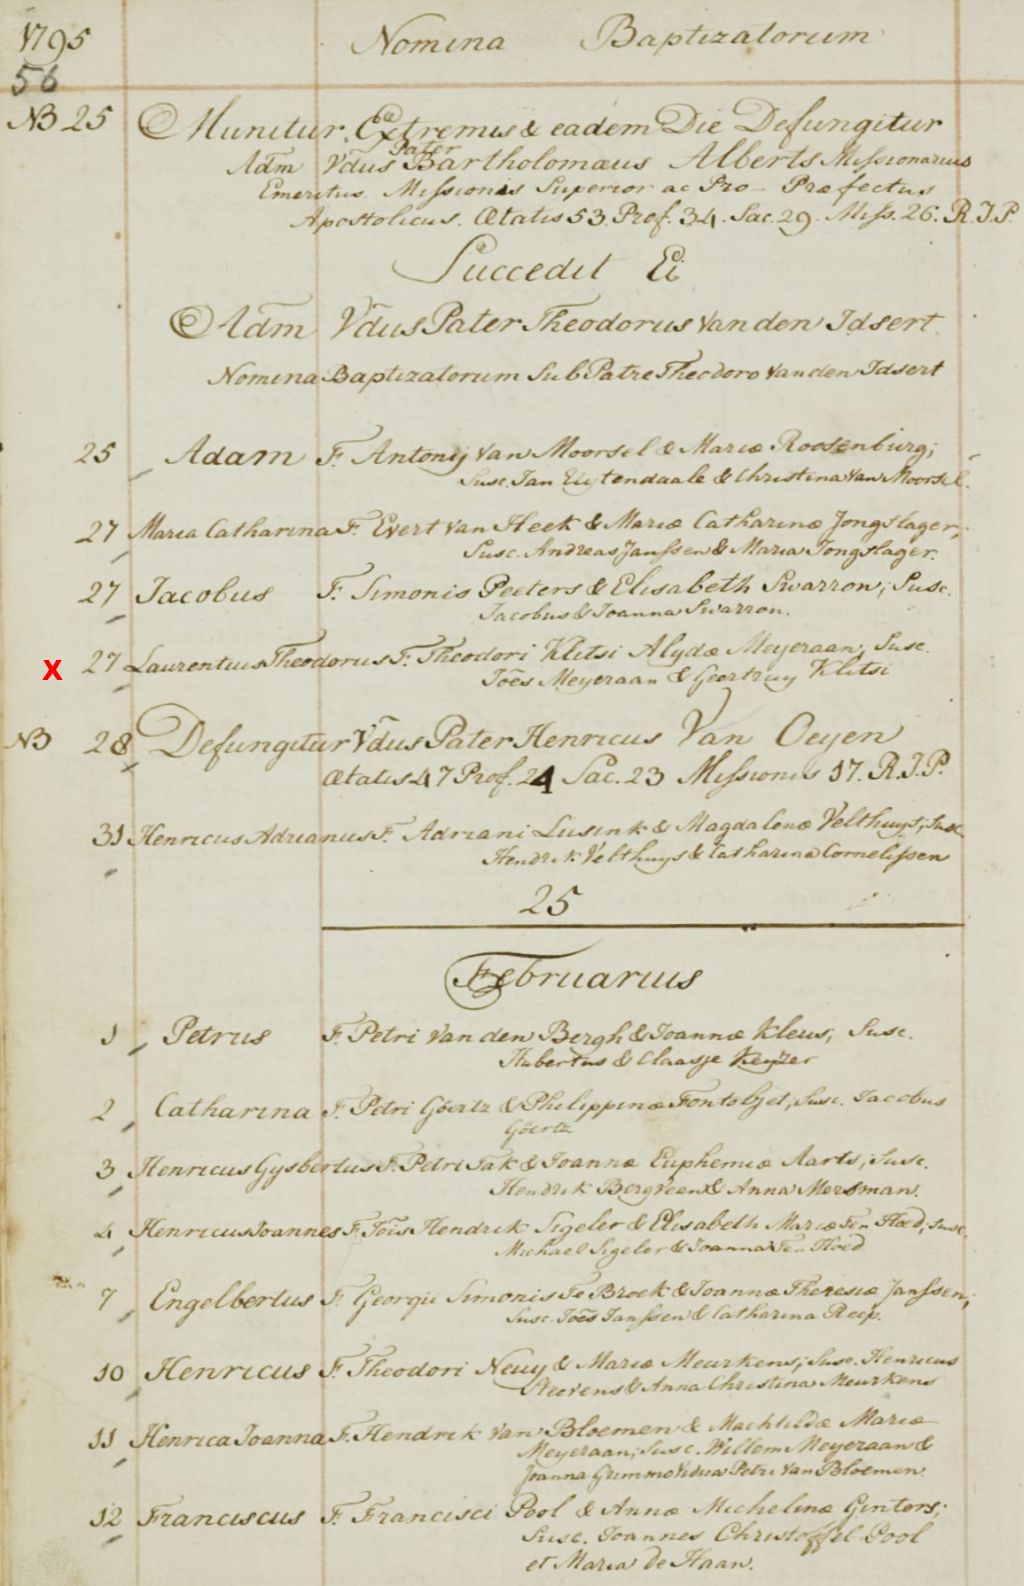 1795
Nomina Baptizatorum
56
NB 25 Munitur Extremis & eadem Die Defungitur
Adm Vdus Pater Bartholomæus Alberts Missionarius
Emeritus Missionis Superior ac Pro-Præfectus
Apostolicus. Ætatis 53. Prof. 34. Sac. 29. Miss. 26. R.I.P.
Succedit Ei
Adm Vdus Pater Theodorus Van den Idsert.
Nomina Baptizatorum Sub Patre Theodoro Van den Idsert
25 Adam F. Antonij Van Moorsel & Mariæ Roosenburg;
Susc. Jan Uijtendaale & Christina Van Moorsel.
27 Maria Catharina F. Evert Van Heek & Mariæ Catharinæ Jongslager;
Susc. Andreas Janssen & Maria Jongslager.
27 Jacobus F. Simonis Peeters & Elisabeth Swarron; Susc.
Jacobus & Joanna Swarron.
X 27 Laurentius Theodorus F. Theodori Klitsi Alydæ Meyeraan; Susc.
Joes Meyeraan & Geertruy Klitsi
NB 28 Defungitur Vdus Pater Henricus Van Oeyen
Ætatis 47 Prof. 24 Sac. 23 Missionis 17. R.I.P.
31 Henricus Adrianus F. Adriani Lusink & Magdalenæ Velthuys; Susc.
Hendrik Velthuys & Catharina Cornelissen
25
Februarius
1 Petrus F. Petri Van den Bergh & Joannæ Kleus; Susc.
Hubertus & Claasje Keyzer
2 Catharina F. Petri Göertz & Philippinæ Fontobjet; Susc. Jacobus
Göertz
3 Henricus Gysbertus F. Petri Tak & Joannæ Euphemiæ Aarts; Susc.
Hendrik Bergveen & Anna Mersman.
4 Henricus Joannes F. Jois Hendrik Sigeler & Elisabeth Mariæ Ten Hoed; Susc.
Michael Sigeler & Joanna Ten Hoed.
7 Engelbertus F. Georgii Simonis Te Broek & Joannæ Theresiæ Janssen;
Susc. Joes Janssen & Catharina Reep.
10 Henricus F. Theodori Neuy & Mariæ Meurkens; Susc. Henricus
Steevens & Anna Christina Meurkens
11 Henrica Joanna F. Hendrik Van Bloemen & Machtildæ Mariæ
Meyeraan; Susc. Willem Meyeraan &
Joanna Grimmo Vidua Petri Van Bloemen.
12 Franciscus F. Francisci Pool & Annæ Michelinæ Gintors;
Susc. Joannes Christoffel Pool
et Maria de Haan.